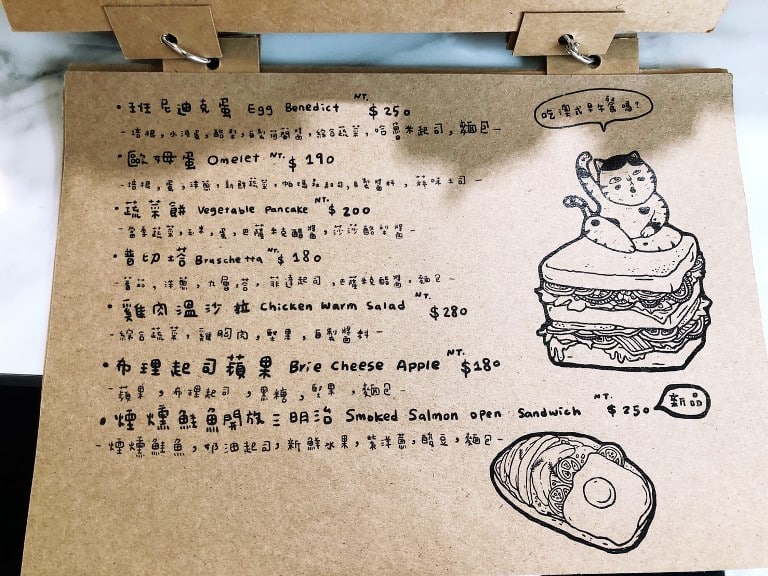 •班尼迪克蛋 Egg Benedict NT. $250
-培根,水波蛋,酪梨,自製荷蘭醬,綜合蔬菜,哈魯米起司,麵包-
•歐姆蛋 Omelet NT. $190
-培根,蛋,洋蔥,新鮮蔬菜,帕瑪森起司,自製醬料,蒜味土司-
•蔬菜餅 Vegetable Pancake NT. $200
-當季蔬菜,玉米,蛋,巴薩米克醋醬,莎莎酪梨醬-
•普切塔 Bruschetta NT. $180
-蕃茄,洋蔥,九層塔,菲達起司,巴薩米克醋醬,麵包-
•雞肉溫沙拉 Chicken Warm Salad NT. $280
-綜合蔬菜,雞胸肉,堅果,自製醬料-
•布理起司蘋果 Brie Cheese Apple NT. $180
-蘋果,布理起司,黑糖,堅果,麵包-
•煙燻鮭魚開放三明治 Smoked Salmon open Sandwich NT. $250
-煙燻鮭魚,奶油起司,新鮮水果,紫洋蔥,酸豆,麵包-
吃澳式早午餐嗎?
新品